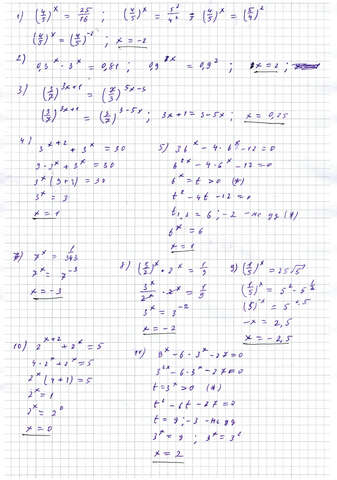 1) (4/5)^x = 25/16 ; (4/5)^x = 5²/4² ; (4/5)^x = (5/4)²
(4/5)^x = (4/5)^-2 ; x = -2
2) 0,3^x · 3^x = 0,81 ; 0,9^x = 0,9² ; x = 2 ;
3) (3/7)^3x+1 = (7/3)^5x-3
(3/7)^3x+1 = (3/7)^3-5x ; 3x+1 = 3-5x ; x = 0,25
4) 3^x+2 + 3^x = 30
9·3^x + 3^x = 30
3^x (9+1) = 30
3^x = 3
x = 1
5) 36^x - 4·6^x - 12 = 0
6^2x - 4·6^x - 12 = 0
6^x = t > 0 (*)
t² - 4t - 12 = 0
t1,2 = 6 ; -2 - не уд (*)
6^x = 6
x = 1
7) 7^x = 1/343
7^x = 7^-3
x = -3
8) (3/2)^x · 2^x = 1/9
3^x/2^x · 2^x = 1/9
3^x = 3^-2
x = -2
9) (1/5)^x = 25√5
(1/5)^x = 5² · 5^1/2
(5)^-x = 5^2,5
-x = 2,5
x = -2,5
10) 2^x+2 + 2^x = 5
4·2^x + 2^x = 5
2^x (4+1) = 5
2^x = 1
2^x = 2^0
x = 0
11) 9^x - 6·3^x - 27 = 0
3^2x - 6·3^x - 27 = 0
t = 3^x > 0 (*)
t² - 6t - 27 = 0
t = 9 ; -3 - не уд
3^x = 9 ; 3^x = 3²
x = 2